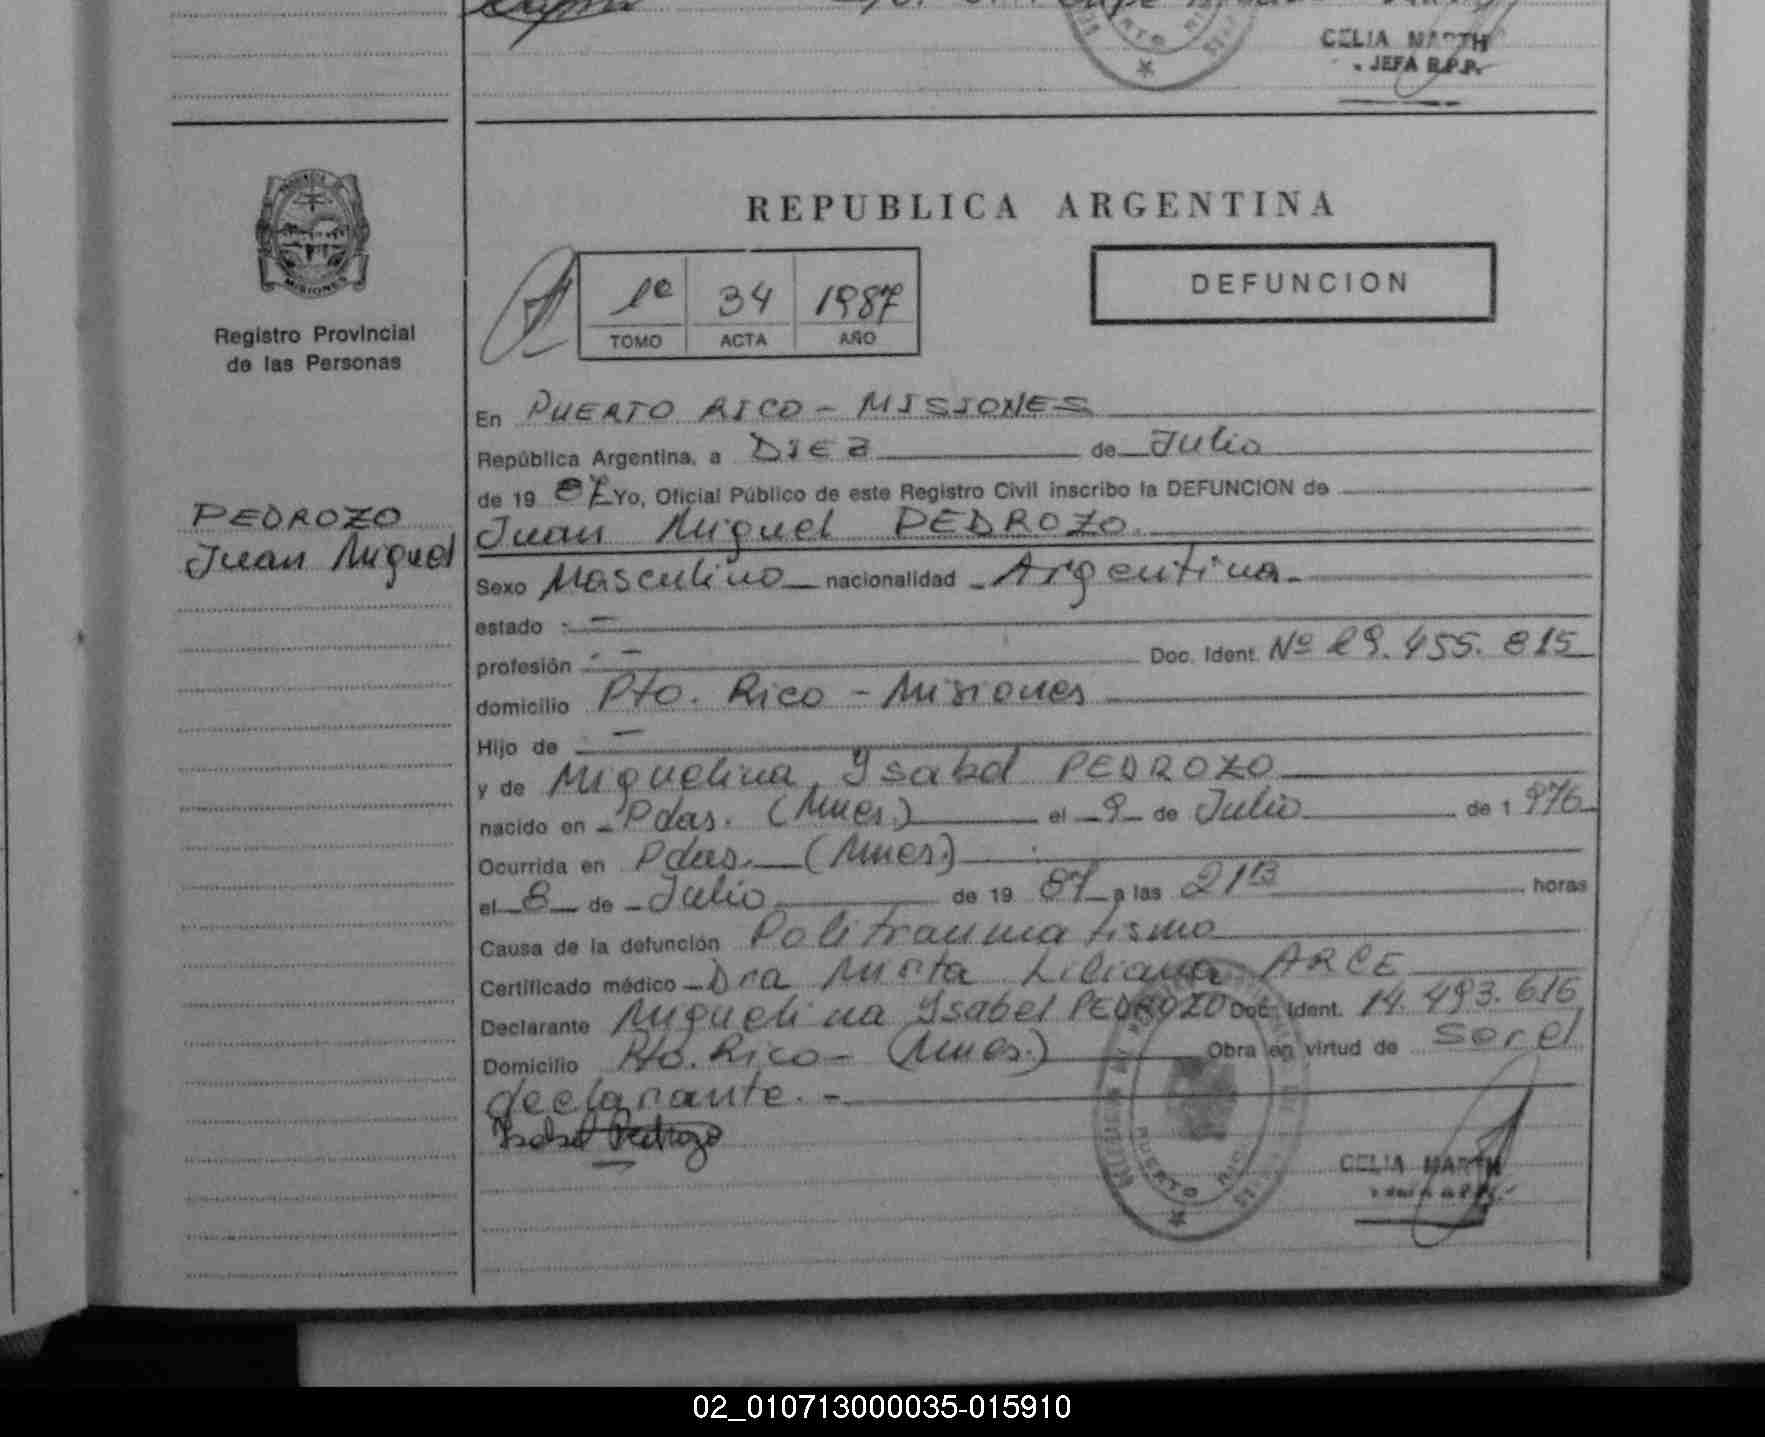 CELIA MARTH
JEFA R.P.P.
REPUBLICA ARGENTINA
MISIONES
Registro Provincial
de las Personas
1º 34 1987
TOMO ACTA AÑO
DEFUNCION
PEDROZO
Juan Miguel
En PUERTO RICO - MISIONES
República Argentina, a DIEZ de Julio
de 19 87 Yo, Oficial Público de este Registro Civil inscribo la DEFUNCION de
Juan Miguel PEDROZO.
Sexo Masculino nacionalidad Argentina.
estado : —
profesión : — Doc. Ident. Nº 29.455.815
domicilio Pto. Rico - Misiones
Hijo de —
y de Miguelina Ysabel PEDROZO
nacido en Pdas. (Mnes.) el 9 de Julio de 1 976
Ocurrida en Pdas. (Mnes.)
el 8 de Julio de 19 87 a las 21 horas
Causa de la defunción Politraumatismo
Certificado médico Dra Mirta Liliana ARCE
Declarante Miguelina Ysabel PEDROZO Doc. Ident. 14.493.616
Domicilio Pto. Rico - (Mnes.) Obra en virtud de ser el
declarante. -
Isabel Pedrozo
PUERTO RICO
CELIA MARTH
02_010713000035-015910